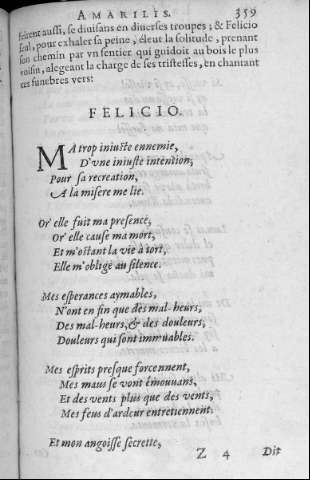 AMARILIS. 359
feirent aussi, se diuisans en diuerses troupes; & Felicio
seul, pour exhaler sa peine, éleut la solitude, prenant
son chemin par vn sentier qui guidoit au bois le plus
voisin, alegeant la charge de ses tristesses, en chantant
ces funebres vers:
FELICIO.
MA trop iniuste ennemie,
D'vne iniuste intention;
Pour sa recreation,
A la misere me lie.
Or' elle fuit ma presence,
Or' elle cause ma mort,
Et m'ostant la vie à tort,
Elle m'oblige au silence.
Mes esperances aymables,
N'ont en fin que des mal-heurs,
Des mal-heurs, & des douleurs,
Douleurs qui sont immuables.
Mes esprits presque forcennent,
Mes maus se vont émouuans,
Et des vents plus que des vents,
Mes feus d'ardeur entretiennent.
Et mon angoisse secrette,
Z 4 Dit